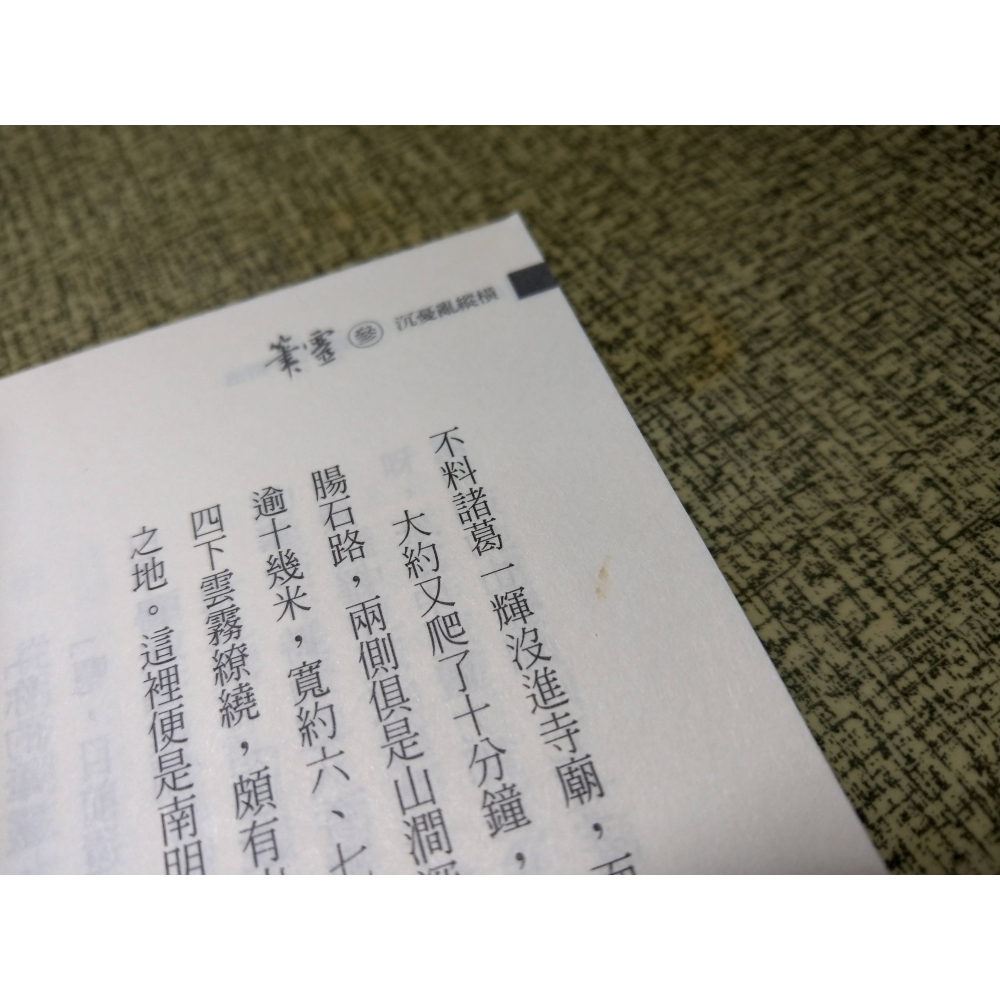 筆靈 參 沉憂亂縱橫
不料諸葛一輝沒進寺廟，而
大約又爬了十分鐘，
腸石路，兩側俱是山澗深
逾十幾米，寬約六、七
四下雲霧繚繞，頗有
之地。這裡便是南明